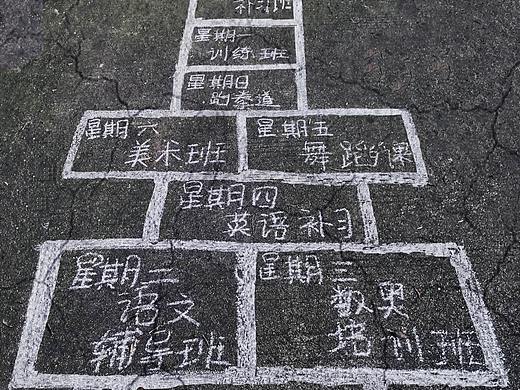 补习班
星期一
训练班
星期日
跆拳道
星期六
美术班
星期五
舞蹈课
星期四
英语补习
星期二
语文
辅导班
星期三
数奥
培训班